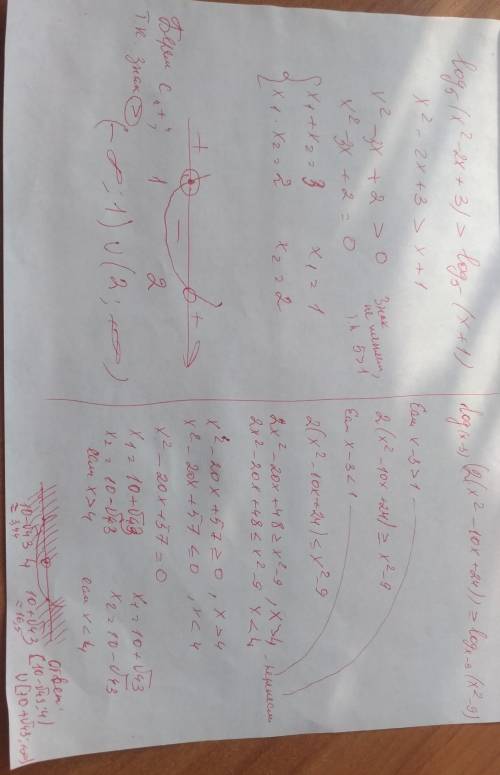 log₅(x²-2x+3) > log₅(x+1)
x²-2x+3 > x+1
x²-3x+2 > 0
Знак не меняем, т.к 5>1
x²-3x+2=0
{ x₁+x₂=3
x₁·x₂=2
x₁=1
x₂=2
+ - +
1 2
Берём с "+",
т.к знак >
(-∞;1)∪(2;+∞)
log₍ₓ₋₃₎(2(x²-10x+24)) ≥ logₓ₋₃(x²-9)
Если x-3>1
2(x²-10x+24) ≥ x²-9
Если x-3<1
2(x²-10x+24) ≤ x²-9
2x²-20x+48 ≥ x²-9, x>4
2x²-20x+48 ≤ x²-9 x<4
перенесем
x²-20x+57 ≥ 0, x>4
x²-20x+57 ≤ 0, x<4
x²-20x+57=0
x₁=10+√43 x₁=10+√43
x₂=10-√43 x₂=10-√43
если x>4 если x<4
10-√43 4 10+√43
≈3,44 ≈16,5
Ответ:
[10-√43;4)
∪[10+√43;+∞)